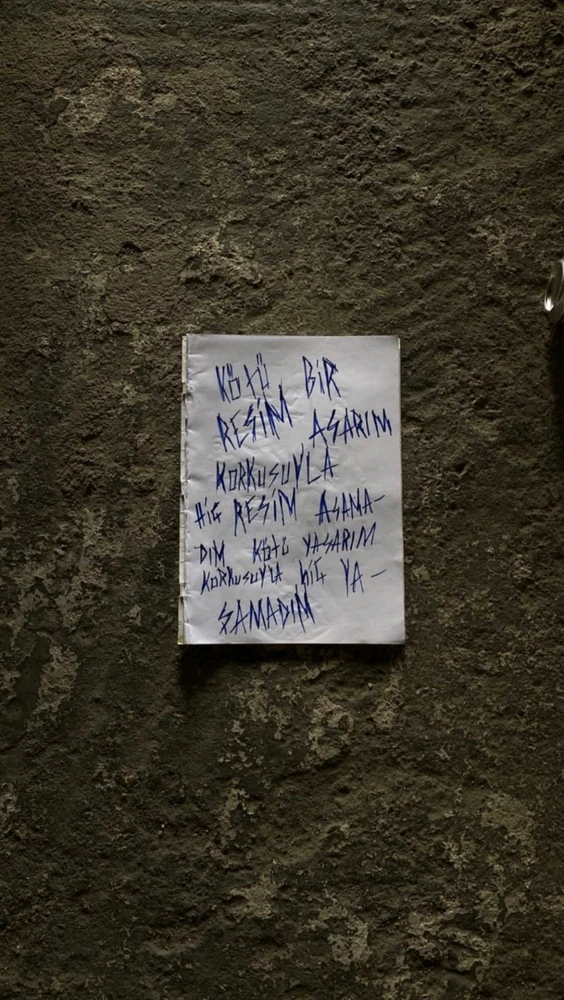 KÖTÜ BİR
RESİM ASARIM
KORKUSUYLA
HİÇ RESİM ASAMA-
DIM KÖTÜ YAŞARIM
KORKUSUYLA HİÇ YA-
ŞAMADIM